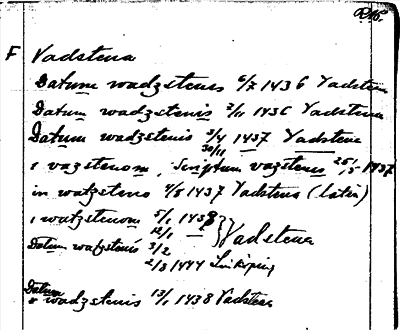 RAp.
F Vadstena
Datum wadzstenes 6/7 1436 Vadstena
Datum wadzstenis 2/11 1436 Vadstena
Datum wadzstenis 3/4 1437 Vadstena
30/11
i vazstenom, Scriptum vazstenis 25/5 1437
in watzsteno 4/8 1437 Vadstena (latin)
i watzstenom 5/1 1438 } Vadstena
12/1
Datum watzstenis 3/2
2/3 1444 Linköping
Datum
i wadzstenis 13/1 1438 Vadstena